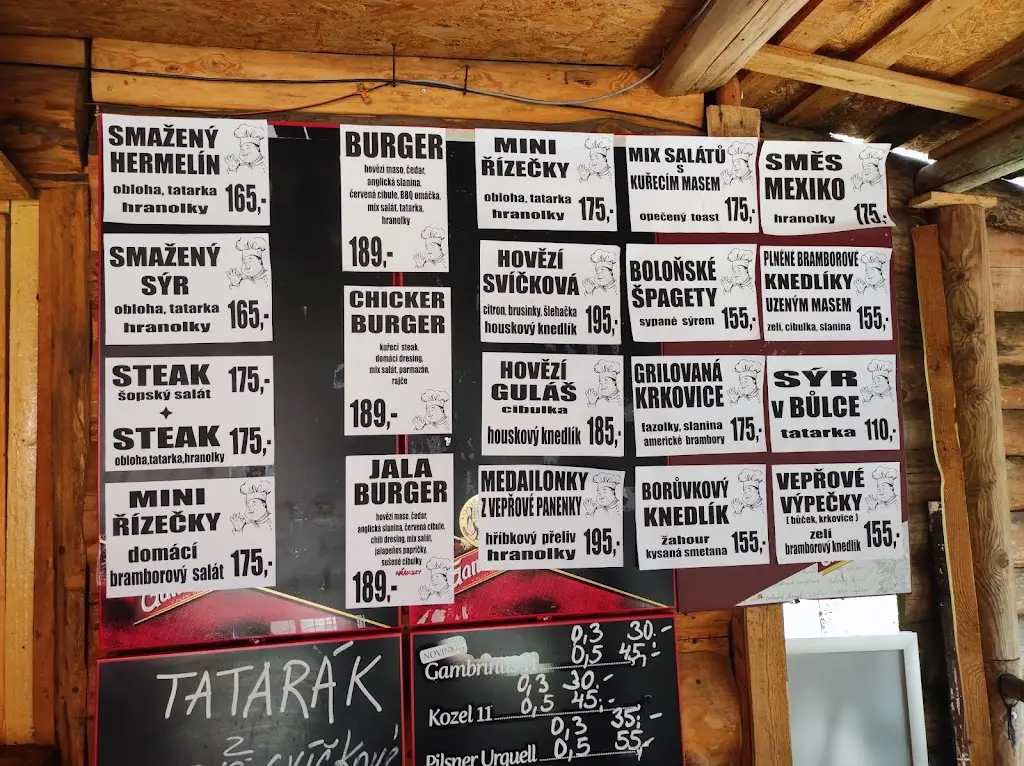 SMAŽENÝ
HERMELÍN
obloha, tatarka
hranolky
165,-
SMAŽENÝ
SÝR
obloha, tatarka
hranolky
165,-
STEAK
šopský salát
175,-
STEAK
obloha,tatarka,hranolky
175,-
MINI
ŘÍZEČKY
domácí
bramborový salát
175,-
BURGER
hovězí maso, čedar,
anglická slanina,
červená cibule, BBQ omáčka,
mix salát, tatarka,
hranolky
189,-
CHICKER
BURGER
kuřecí steak,
domácí dresing,
mix salát, parmazán,
rajče
189,-
JALA
BURGER
hovězí maso, čedar,
anglická slanina, červená cibule,
chilli dresing, mix salát,
jalapeňos papričky,
sušené cibulky
HRANOLKY
189,-
MINI
ŘÍZEČKY
obloha, tatarka
hranolky
175,-
HOVĚZÍ
SVÍČKOVÁ
citron, brusinky, šlehačka
houskový knedlík
195,-
HOVĚZÍ
GULÁŠ
cibulka
houskový knedlík
185,-
MEDAILONKY
Z VEPŘOVÉ PANENKY
hříbkový přeliv
hranolky
195,-
MIX SALÁTŮ
S
KUŘECÍM MASEM
opečený toast
175,-
BOLOŇSKÉ
ŠPAGETY
sypané sýrem
155,-
GRILOVANÁ
KRKOVICE
fazolky, slanina
americké brambory
175,-
BORŮVKOVÝ
KNEDLÍK
žahour
kysaná smetana
155,-
SMĚS
MEXIKO
hranolky
175,-
PLNĚNÉ BRAMBOROVÉ
KNEDLÍKY
UZENÝM MASEM
zelí, cibulka, slanina
155,-
SÝR
V BŮLCE
tatarka
110,-
VEPŘOVÉ
VÝPEČKY
( bůček, krkovice )
zelí
bramborový knedlík
155,-
TATARÁK
Z
svíčkové
NOVINKA
0,3 30:-
Gambrinus
0,5 45,-
0,3 30:-
Kozel 11
0,5 45:-
0,3 35:-
Pilsner Urquell
0,5 55,-